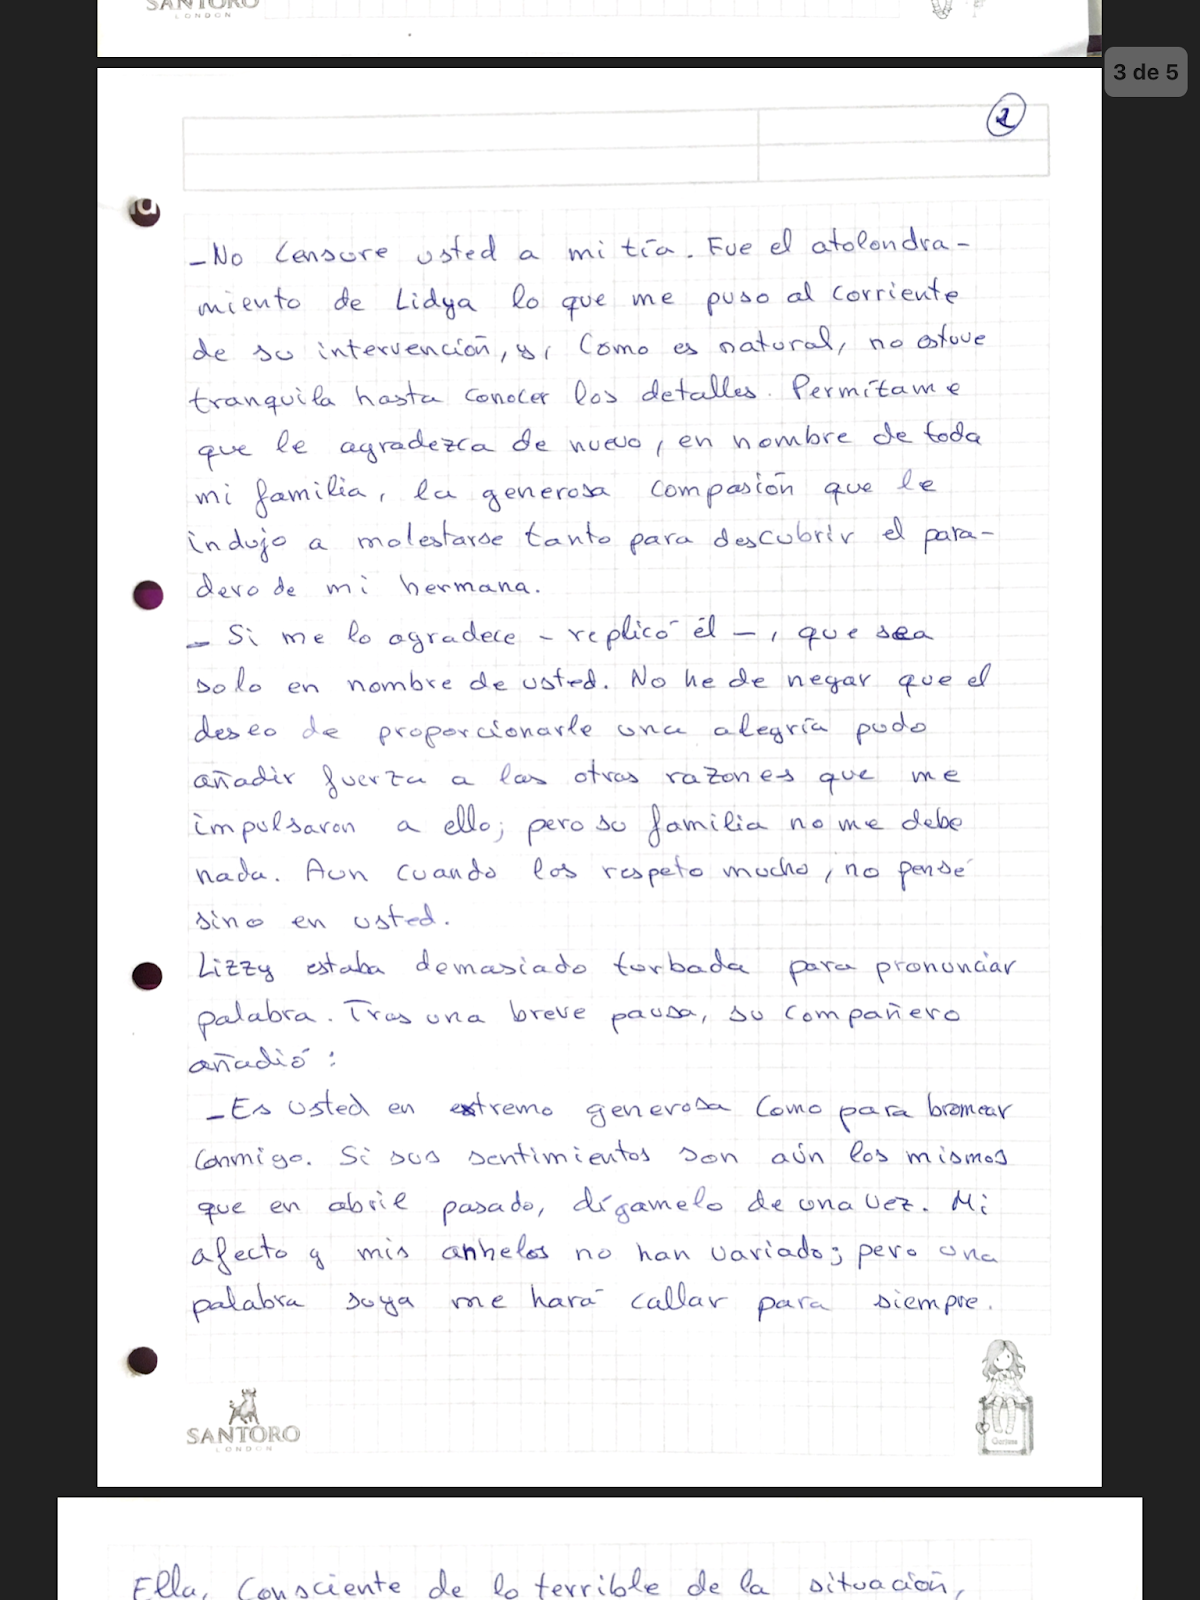 SANTORO
LONDON
3 de 5
2
- No censure usted a mi tía. Fue el atolondra-
miento de Lidya lo que me puso al corriente
de su intervención, y, como es natural, no estuve
tranquila hasta conocer los detalles. Permítame
que le agradezca de nuevo, en nombre de toda
mi familia, la generosa compasión que le
indujo a molestarse tanto para descubrir el para-
dero de mi hermana.
- Si me lo agradece - replicó él -, que sea
solo en nombre de usted. No he de negar que el
deseo de proporcionarle una alegría pudo
añadir fuerza a las otras razones que me
impulsaron a ello; pero su familia no me debe
nada. Aun cuando los respeto mucho, no pensé
sino en usted.
Lizzy estaba demasiado turbada para pronunciar
palabra. Tras una breve pausa, su compañero
añadió:
- Es usted en extremo generosa como para bromear
conmigo. Si sus sentimientos son aún los mismos
que en abril pasado, dígamelo de una vez. Mi
afecto y mis anhelos no han variado; pero una
palabra suya me hará callar para siempre.
SANTORO
LONDON
Gorjuss
Ella, consciente de lo terrible de la situación,